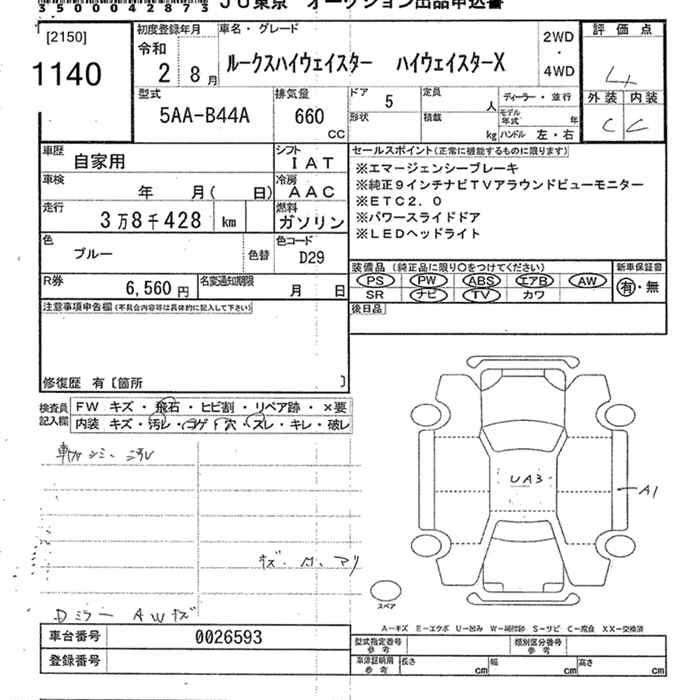 35000042873 JU東京 オークション出品申込書
[2150]
1140
初度登録年月
令和
2 8月
車名・グレード
ルークスハイウェイスター ハイウェイスターX
2WD
・
4WD
評価点
4
外装 内装
C C
型式
5AA-B44A
排気量
660
CC
ドア
5
形状
定員
人
積載
kg
ディーラー・並行
モデル年式
年
ハンドル 左・右
車歴
自家用
シフト
IAT
車検
年 月( 日)
冷房
AAC
走行
3万8千428 km
燃料
ガソリン
色
ブルー
色替
色コード
D29
R券
6,560円
名変通知期限
月 日
セールスポイント(正常に機能するものに限ります)
※エマージェンシーブレーキ
※純正9インチナビTVアラウンドビューモニター
※ETC2.0
※パワースライドドア
※LEDヘッドライト
装備品(純正品に限り○をつけてください)
PS PW ABS エアB AW
SR ナビ TV カワ
新車保証書
有・無
後日品
注意事項申告欄(不具合内容等は具体的に記入して下さい)
修復歴 有〔箇所 〕
検査員記入欄
FW キズ・飛石・ヒビ割・リペア跡・×要
内装 キズ・汚レ・コゲ・穴・スレ・キレ・破レ
UA3
A1
スペア
Dミラー AWキズ
A－キズ E－エクボ U－凹み W－補修跡 S－サビ C－腐食 XX－交換済
車台番号 0026593
登録番号
型式指定番号
参考
類別区分番号
参考
車庫証明用
参考
長さ cm
幅 cm
高さ cm